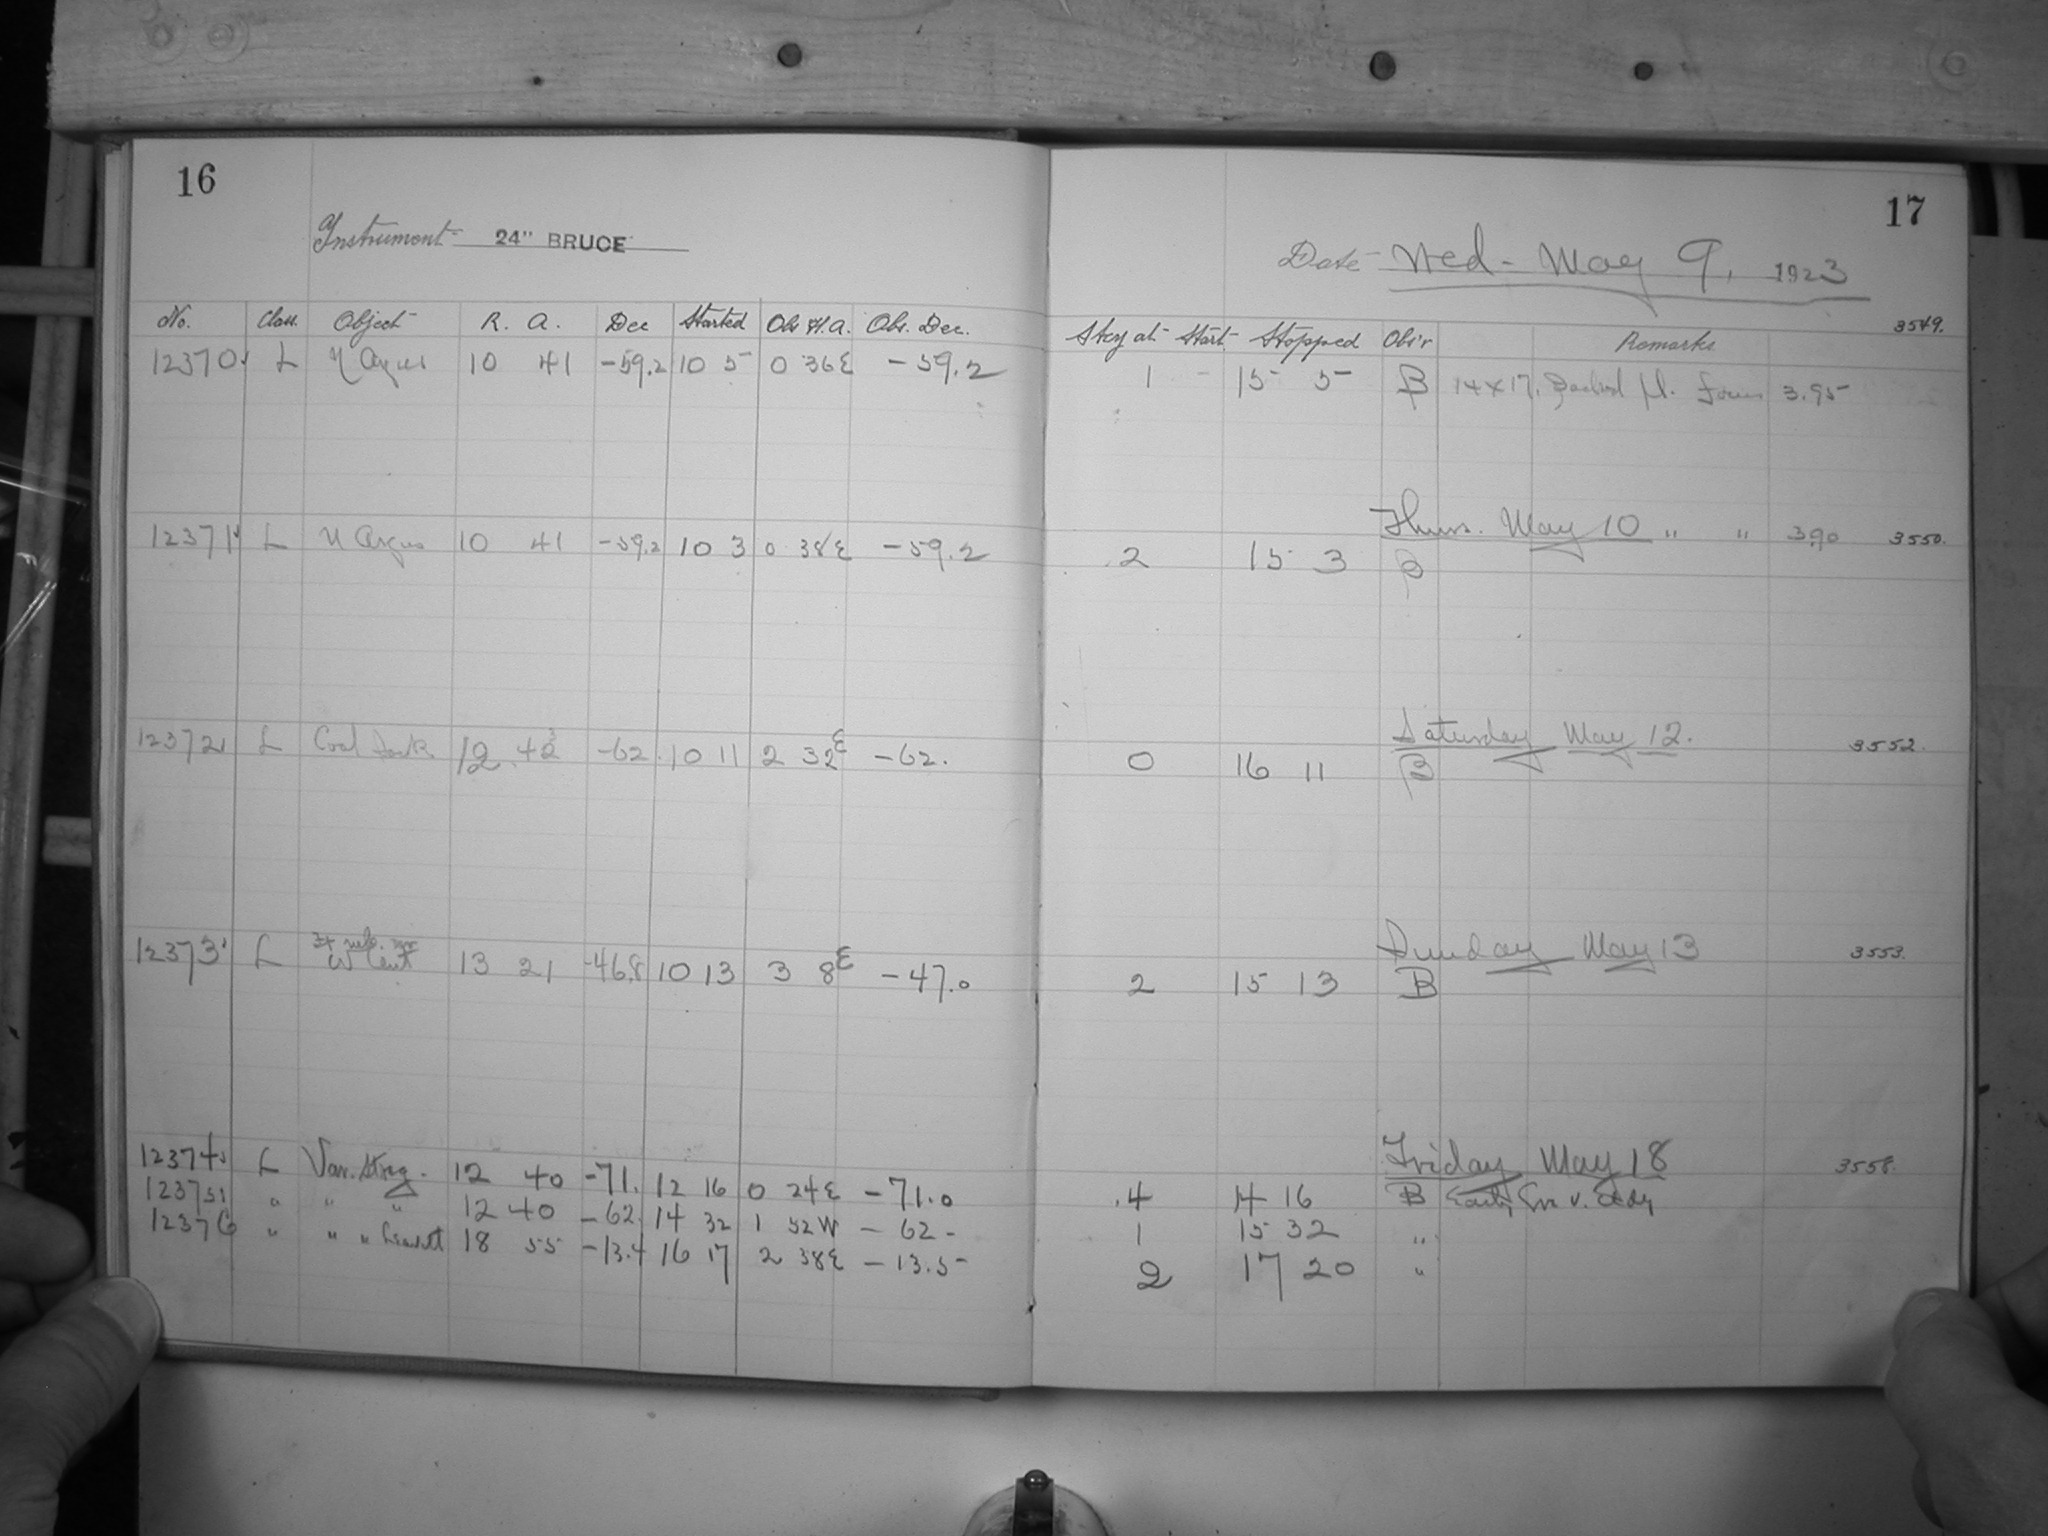 16
Instrument 24" BRUCE
No. Class. Object R. A. Dec Started Obs H.A. Obs. Dec.
12370 L η Argus 10 41 -59.2 10 5 0 36E -59.2
12371 L η Argus 10 41 -59.2 10 3 0 38E -59.2
12372 L Coal Sack 12 43 -62. 10 11 2 32E -62.
12373 L W Cent 13 21 -46.8 10 13 3 8E -47.0
12374 L Var. Strg. 12 40 -71. 12 16 0 24E -71.0
12375 " " " 12 40 -62. 14 32 1 52W -62-
12376 " " " 18 55 -13.4 16 17 2 38E -13.5-
17
Date Wed- May 9, 1923
3549.
Sky at Start Stopped Obs'r Remarks
1 - 15 5 B 14x17. Backed pl. Focus 3.95
Thurs. May 10 " " 3.90 3550.
2 15 3 B
Saturday May 12. 3552.
0 16 11 B
Sunday May 13 3553.
2 15 13 B
Friday May 18 3558.
4 14 16 B Early
1 15 32 "
2 17 20 "